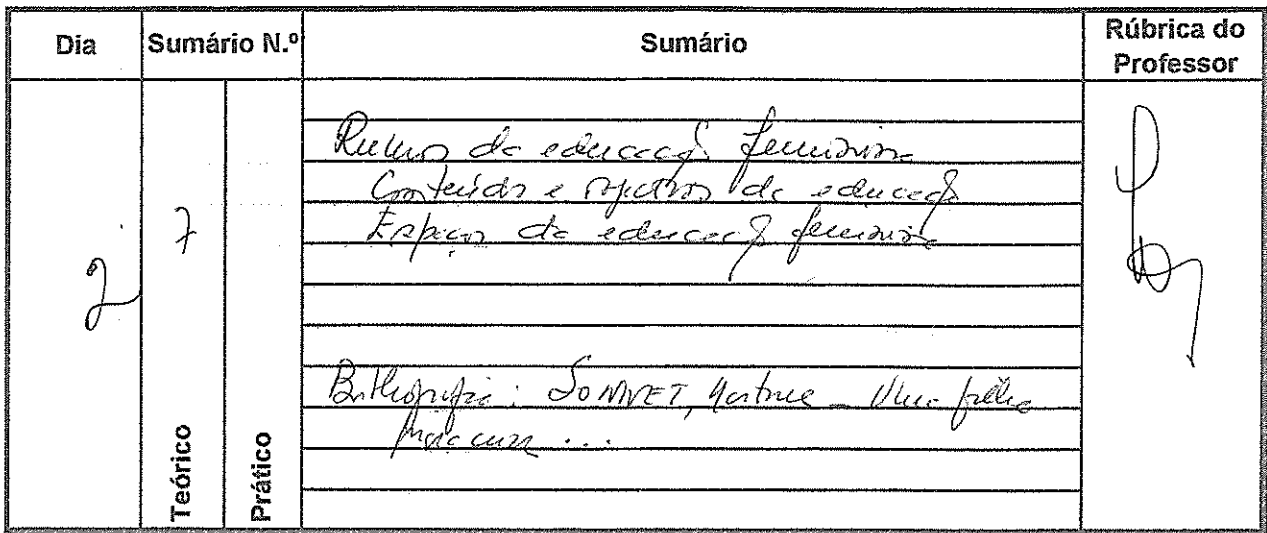 Dia Sumário N.º Sumário Rúbrica do Professor
2
7
Teórico
Prático
da educação feminina
Conteúdos e objectivos da educação
Espaços da educação feminina
Bibliografia: SONNET, Martine – Uma filha
para educar ...